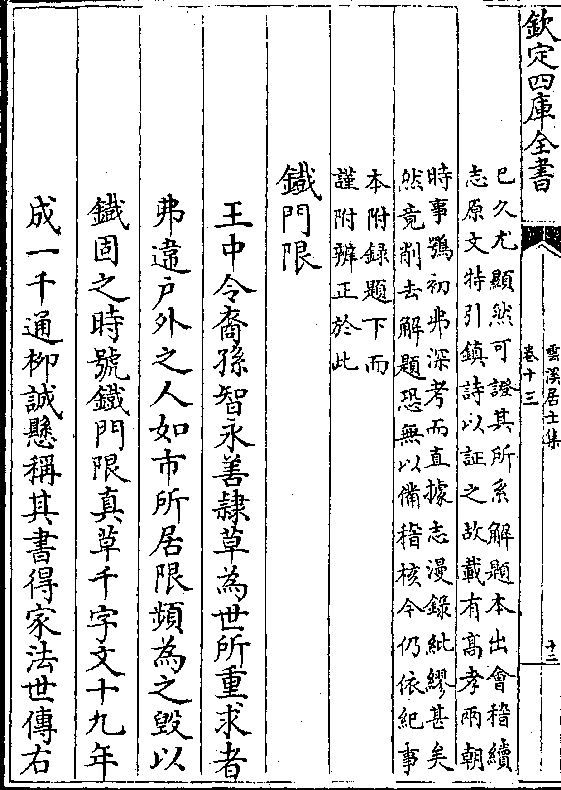 欽定四庫全書
雲溪居士集
卷十三
十二
已久尤顯然可證其所系解題本出會稽續
志原文特引鎮詩以証之故載有高孝兩朝
時事鶚初弗深考而直據志漫錄紕繆甚矣
然竟削去解題恐無以備稽核今仍依紀事
本附錄題下而
謹附辨正於此
鐵門限
王中令裔孫智永善隸草為世所重求者
弗違戶外之人如市所居限頻為之毀以
鐵固之時號鐵門限真草千字文十九年
成一千通柳誠懸稱其書得家法世傳右